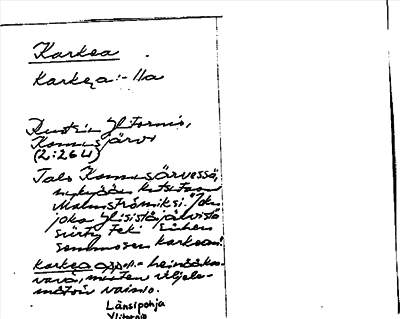 Karkea
Karkea: -lla
Ruotsin Ylitornio,
Kainuujärvi
(2:264)
Talo Kainuujärvessä,
nykyään kutsutaan
Malmströmiksi. "Joku
joka Ylisistäjärvistä
siirty teki siihen
semmosen karkean."
karkea app. = heinääkas-
vava, muuten viljele-
mätön vainio.
Länsipohja
Ylitornio